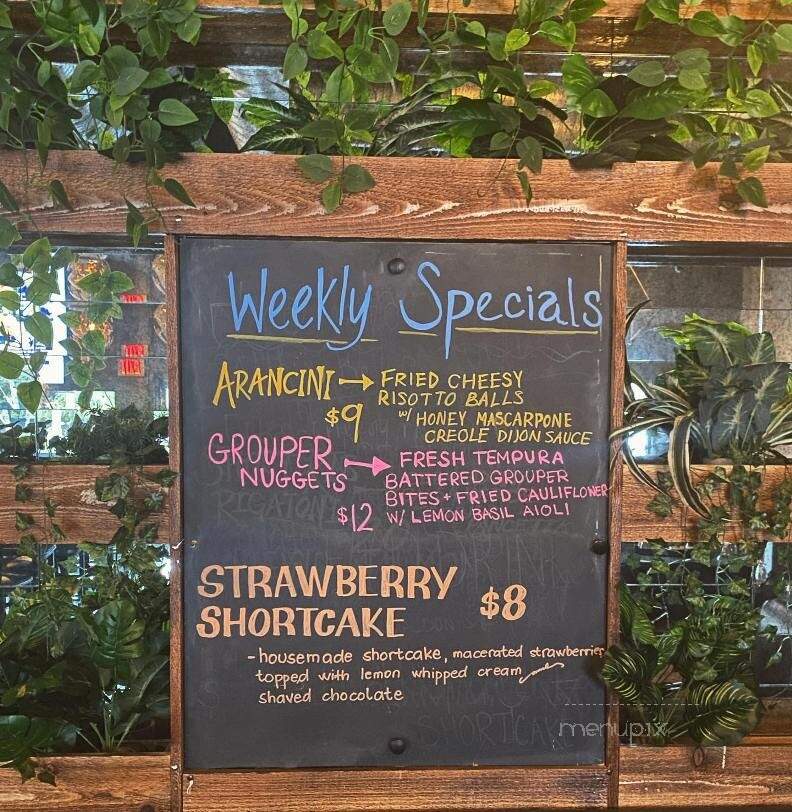 Weekly Specials
ARANCINI → FRIED CHEESY
RISOTTO BALLS
$9 w/ HONEY MASCARPONE
CREOLE DIJON SAUCE
GROUPER → FRESH TEMPURA
NUGGETS BATTERED GROUPER
BITES + FRIED CAULIFLOWER
$12 W/ LEMON BASIL AIOLI
STRAWBERRY
SHORTCAKE $8
- housemade shortcake, macerated strawberries
topped with lemon whipped cream
shaved chocolate
RIGATONI
SHORTCAKE
menupix